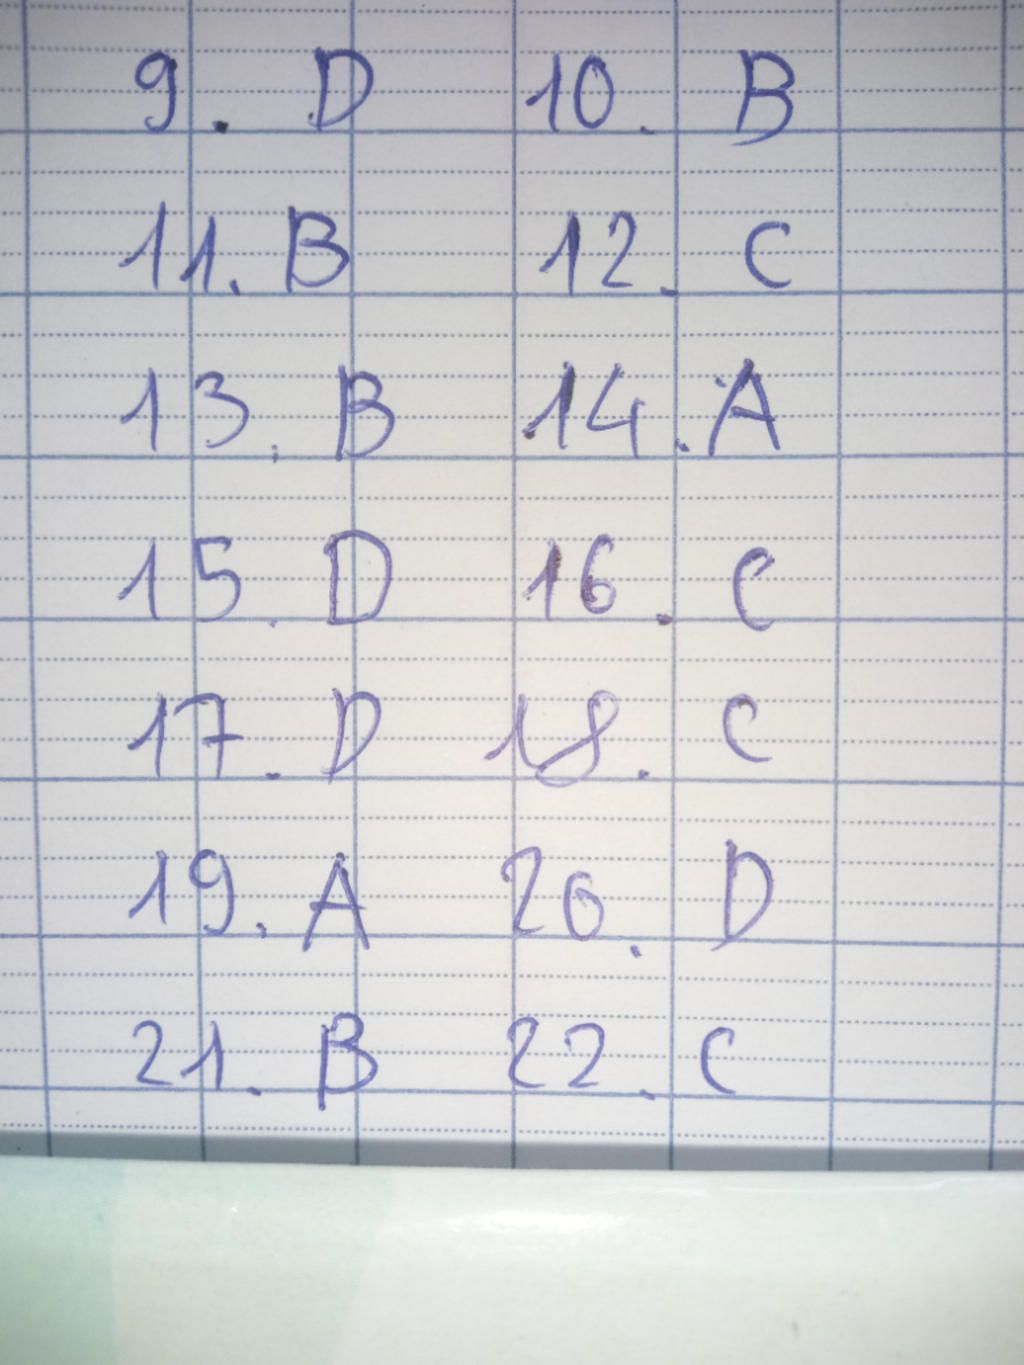 9. D 10. B
11. B 12. C
13. B 14. A
15. D 16. C
17. D 18. C
19. A 20. D
21. B 22. C